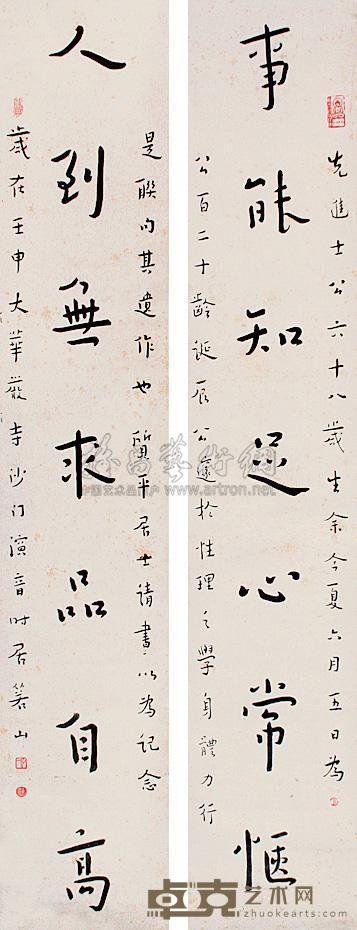 事能知足心常愜
先進士公六十八歲生余今夏六月五日為
公百二十齡誕辰公邃於性理之學身體力行
人到無求品自高
是聯句其遺作也質平居士請書以為記念
歲在壬申大華嚴寺沙门演音时居箬山
www.artron.net
卓克艺术网
zhuokearts.com